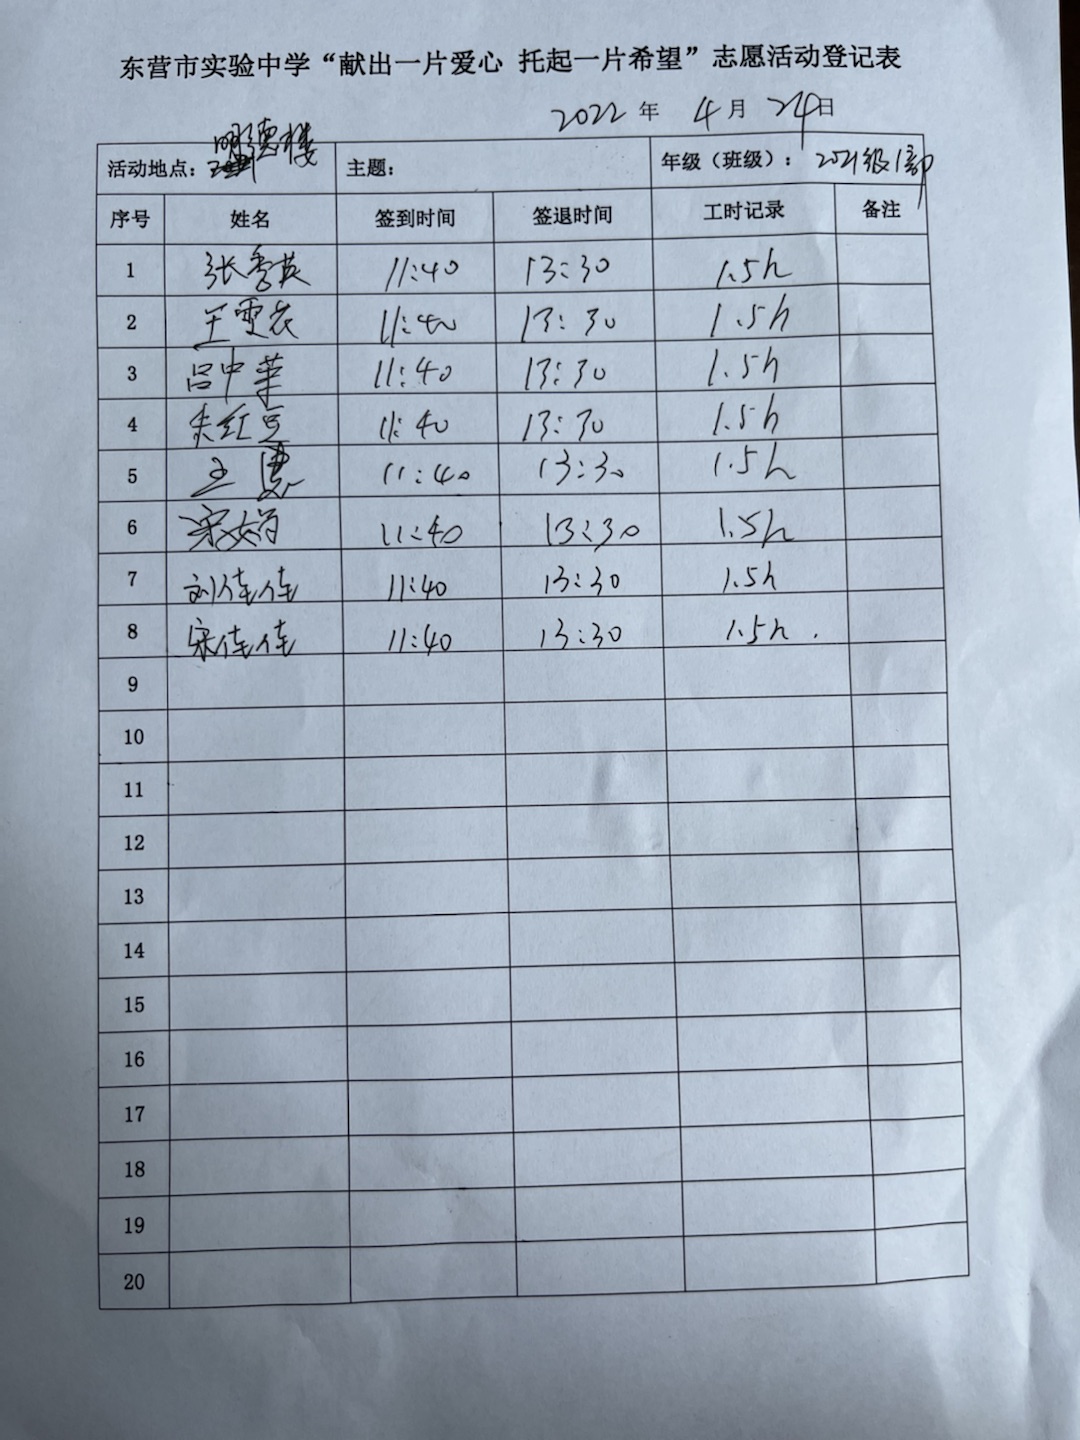 东营市实验中学“献出一片爱心 托起一片希望”志愿活动登记表
2022年 4月 24日
活动地点：明德楼 主题： 年级（班级）：2021级1部
序号 姓名 签到时间 签退时间 工时记录 备注
1 张秀英 11:40 13:30 1.5h
2 王雯 11:40 13:30 1.5h
3 吕中华 11:40 13:30 1.5h
4 朱红 11:40 13:30 1.5h
5 王慧 11:40 13:30 1.5h
6 宋 11:40 13:30 1.5h
7 刘佳佳 11:40 13:30 1.5h
8 宋佳佳 11:40 13:30 1.5h.
9
10
11
12
13
14
15
16
17
18
19
20